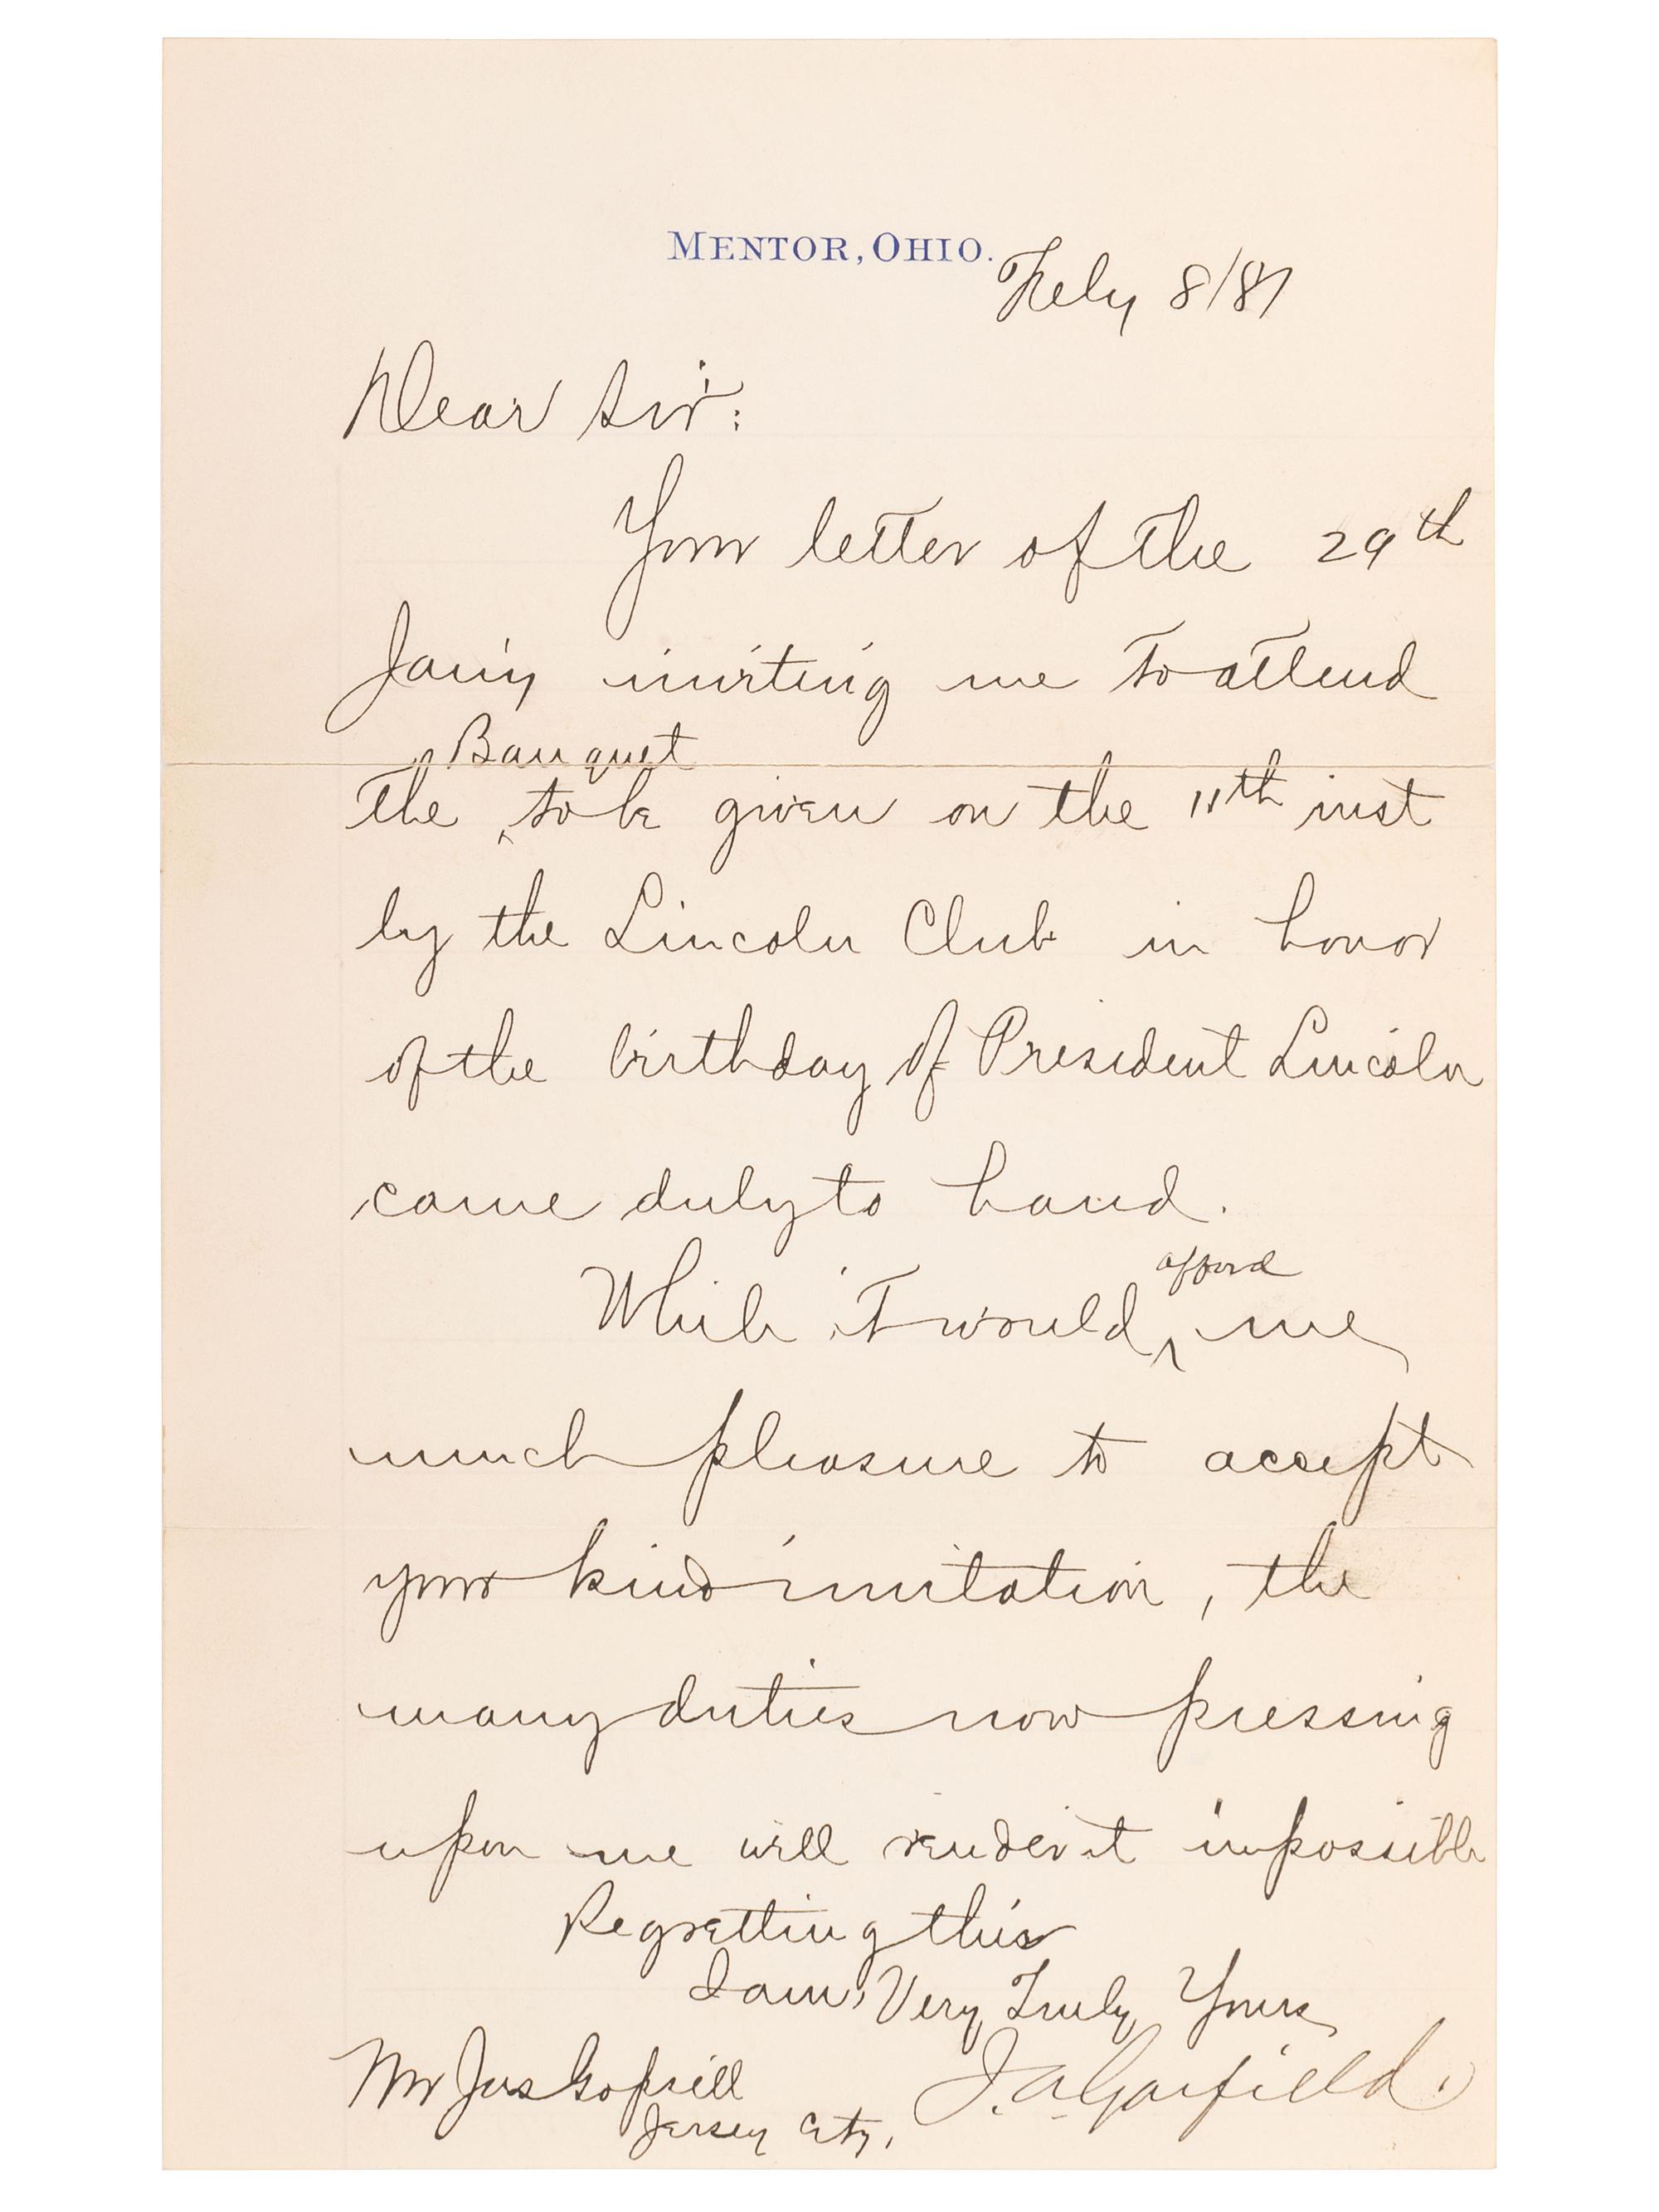 MENTOR, OHIO.
Feby 8/81
Dear Sir:
Your letter of the 29th
Jan'y inviting me to attend
Banquet
the ‸ to be given on the 11th inst
by the Lincoln Club in honor
of the birthday of President Lincoln
came duly to hand.
afford
While it would ‸ me
much pleasure to accept
your kind invitation, the
many duties now pressing
upon me will render it impossible
Regretting this
I am, Very Truly Yours
J. A. Garfield.
Mr Jas Gopsill
Jersey City,